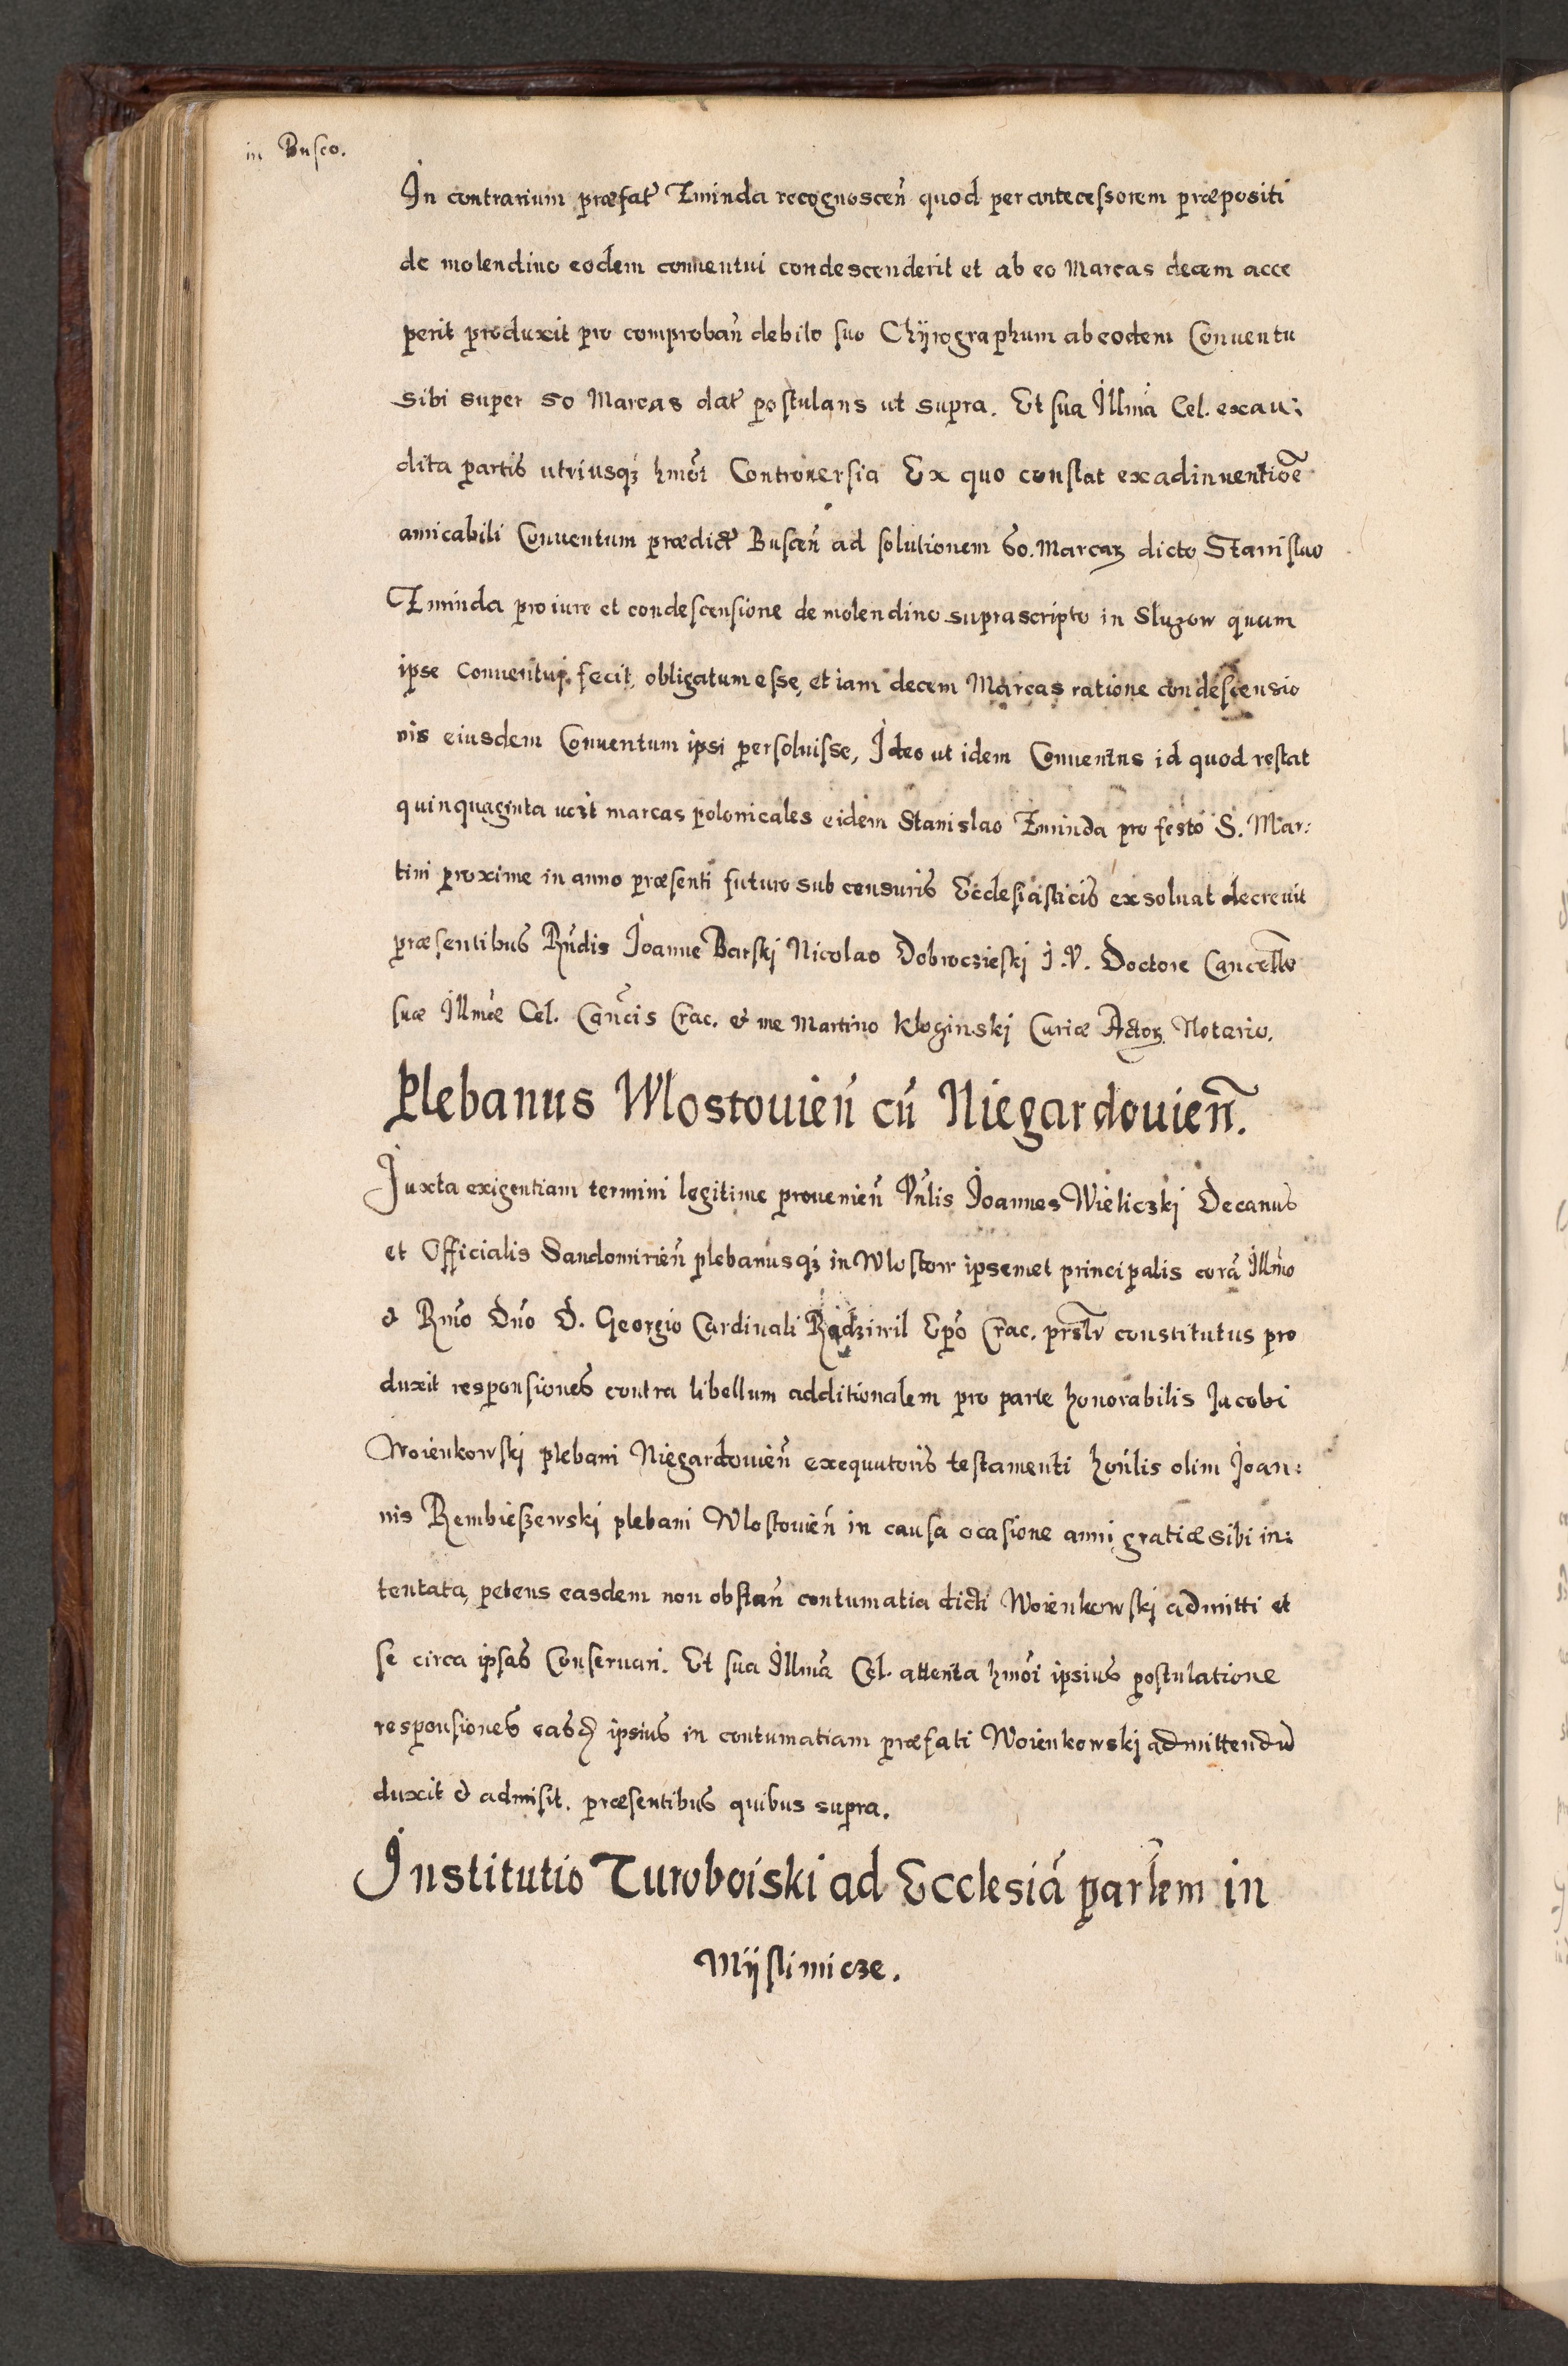 in Busco.
In contrarium præfat̃ Zminda recognosceñ quod per antecessorem præpositi
de molendino eodem conuentui condescenderit et ab eo Marcas decem acce
perit produxit pro comprobañ debito suo Chÿrographum ab eodem Conuentu
sibi super 50 Marcas dat̃ postulans ut supra. Et sua Illmã Cel. exau:
dita partis utriusqȝ hmõi Controuersia Ex quo constat ex adinuentiõe
amicabili Conuentum prædict̃ Busceñ ad solutionem 60. Marcaꝝ dicto Stanislao
Zminda pro iure et condescensione de molendino suprascripto in Sluzow quam
ipse Conuentui fecit, obligatum esse, et iam decem Marcas ratione condescensio
nis eiusdem Conuentum ipsi persoluisse, Ideo ut idem Conuentus id quod restat
quinquaginta uczt marcas polonicales eidem Stanislao Zminda pro festo S. Mar:
tini proxime in anno præsenti futuro sub censuris Ecclesiasticis exsoluat decreuit
præsentibus Rñdis Joanne Barski Nicolao Dobroczieski J. V. Doctore Cancellr̃o
suæ Illmæ̃ Cel. Cañcis Crac. & me Martino Kloginski Curiæ Actoꝝ Notario.
Plebanus Wlostouieñ cũ Niegardouieñ.
Juxta exigentiam termini legitime prouenieñ Vñlis Joannes Wieliczki Decanus
et Officialis Sandomirieñ plebanusqȝ in Wlostow ipsemet principalis corã Illmõ
& Rmõ Dño D. Georgio Cardinali Radziwil Epõ Crac. prs̃lr constitutus pro
duxit responsiones contra libellum additionalem pro parte honorabilis Jacobi
Woienkowski plebani Niegardouieñ exequutoris testamenti hoñlis olim Joan:
nis Rembieszewski plebani Wlostouieñ in causa ocasione anni gratiæ sibi in:
tentata, petens easdem non obstañ contumatia dicti Woienkowski admitti et
se circa ipsas Conseruari. Et sua Illmã Cel. attenta hmõi ipsius postulatione
responsiones easđ ipsius in contumatiam præfati Woienkowski admittendũ
duxit & admisit. præsentibus quibus supra.
Institutio Turoboiski ad Ecclesiã parl̃em in
Mÿslimicze.